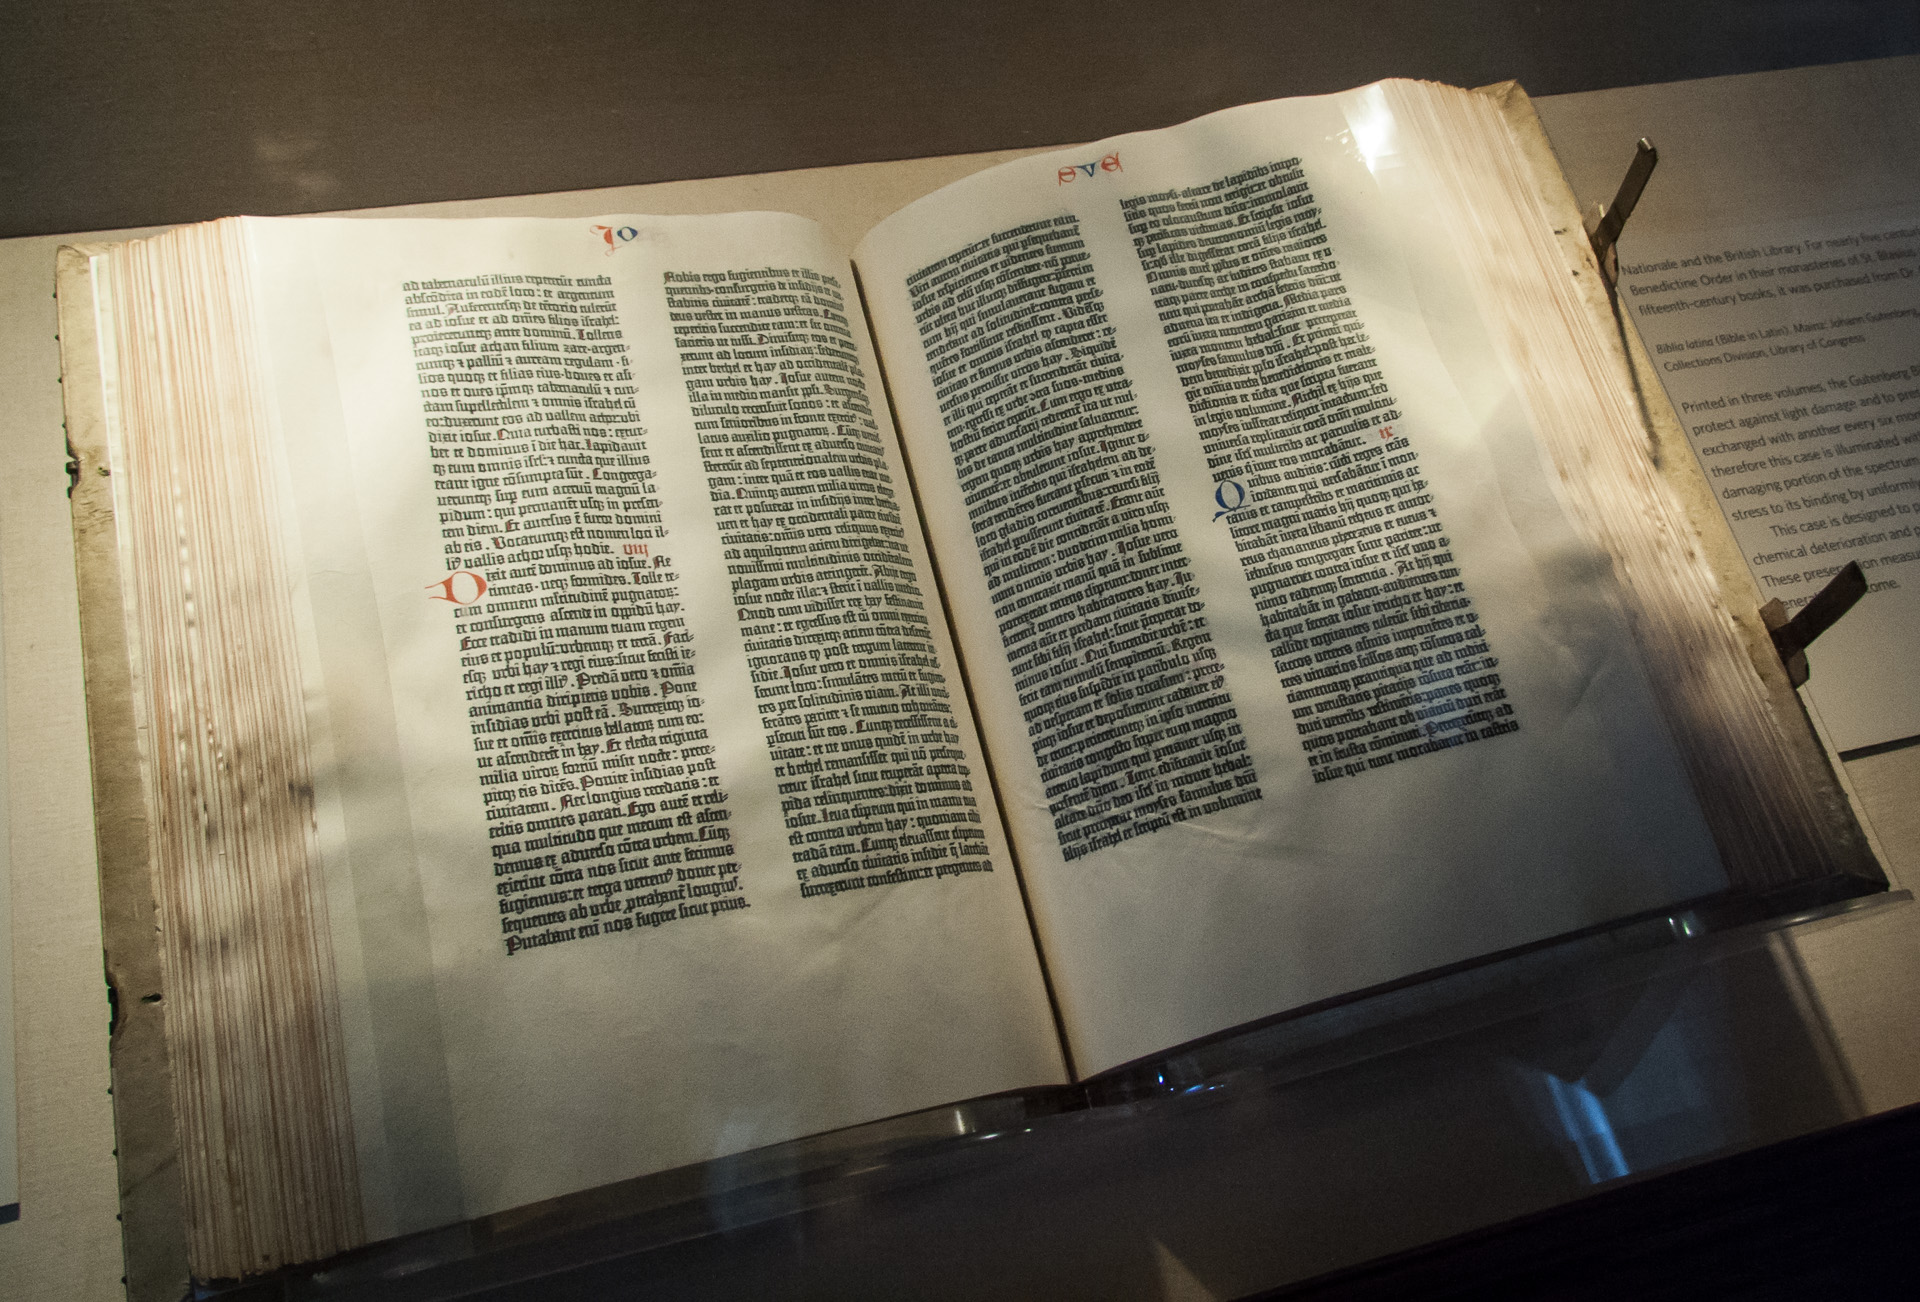 Jo
ad tabernaculū illius repererūt cuncta
abscōdita in eodē loco: et argentum
simul. Auferentesqʒ de tētorio tulerūt
ea ad iosue et ad omēs filios israhel:
proieceruntqʒ ante dominū. Tollens
itaqʒ iosue achan filium zare argen-
tumqʒ ⁊ palliū ⁊ auream regulam · fi-
lios quoqʒ et filias eius · boues et asi-
nos et oues ipm̄qʒ tabernaculū ⁊ cun-
ctam supellectilem ⁊ omnis israhel cū
eo: duxerunt eos ad vallem achor: ubi
dixit iosue. Quia turbasti nos: extur-
bet te dominus ī die hac. Lapidauit-
qʒ eum omnis isrl̄: ⁊ cuncta que illius
erant igne cōsumpta sūt. Congrega-
ueruntqʒ sup eum aceruū magnū la-
pidum: qui permanet usqʒ in presen-
tem diem. Et auersus ē furor domini
ab eis. Vocatumqʒ est nomen loci il-
liꝰ vallis achor usqʒ hodie. viij
Dixit autē dominus ad iosue. Ne
timeas · neqʒ formides. Tolle te-
cum omnem multitudinē pugnatorū:
et consurgens ascende in oppidū hay.
Ecce tradidi in manum tuam regem
eius et populū: urbemqʒ et terrā. Faci-
esqʒ urbi hay ⁊ regi eius: sicut fecisti ie-
richo et regi illiꝰ. Predā vero ⁊ omīa
animantia diripietis vobis. Pone
insidias urbi post eā. Surrexitqʒ io-
sue et omīs exercitus bellatorū cum eo:
ut ascenderēt in hay. Et electa triginta
milia viroꝝ fortiū misit nocte: prece-
pitqʒ eis dicēs. Ponite insidias post
ciuitatem. Nec longius recedatis: et
eritis omnes parati. Ego autē et reli-
qua multitudo que mecum est accen-
demus ex aduerso cōtra urbem. Cūqʒ
exierint cōtra nos sicut ante fecimus
fugiemus: et terga vertemꝰ donec per-
sequentes ab urbe ptrahant longiꝰ.
Putabant eni nos fugere sicut prius.
Nobis ergo fugientibus et illis
quentibꝫ · consurgetis de insidijs et
stabitis ciuitatē: tradetqʒ eā dominus
deus vester in manus vestras. Cumqʒ
ceperitis succendite eam: et sic omnia
facietis ut iussi. Dimisitqʒ eos et
rexerunt ad locum insidiaꝝ: sederuntqʒ
inter bethel et hay ad occidentalē pla-
gam urbis hay. Iosue autem nocte
illa in medio mansit ppl̄i. Surgensqʒ
diluculo recensuit socios: et ascendit
cum senioribus in fronte exercitꝰ: val-
latus auxilio pugnatoꝝ. Cūqʒ venis-
sent et ascendissent ex aduerso ciuitatis
steterūt ad septentrionalem urbis pla-
gam: inter quā et eos vallis erat me-
dia. Quinqʒ autem milia viros elege-
rat et posuerat in insidijs inter betha-
uen et hay ex occidentali parte eiusdē
ciuitatis: omīs vero reliquus exercitꝰ
ad aquilonem aciem dirigebat
nouissimi multitudinis occidentalem
plagam urbis attingerēt. Abijt ergo
iosue nocte illa: ⁊ stetit ī vallis medio.
Quod cum vidisset rex hay festinauit
mane: et egressus est cū omni exercitu
ciuitatis direxitqʒ aciem cōtra desertū:
ignorans qꝫ post tergum laterent in-
sidie. Iosue vero et omnis israhel ces-
serunt loco: simulātes metū et fugien-
tes per solitudinis viam. At illi voci-
ferātes pariter ⁊ se mutuo cohortātes:
psecuti sūt eos. Cumqʒ recessissent a ci-
uitate: et ne unus quidē in urbe hay
et bethel remansisset qui nō persequere-
retur israhel sicut eruperāt aperta op-
pida relinquentes: dixit dominus ad
iosue. Leua clipeum qui in manu tua
est contra urbem hay: quoniam tibi
tradā eam. Cumqʒ eleuasset clipeum
ex aduerso ciuitatis insidie q̄ latebāt
surrexerunt confestim: et pergentes ad
sve
ciuitatem ceperūt: et succenderunt eam.
Viri autem ciuitatis qui psequebant
iosue respicientes et videntes fumum
urbis ad celū usqʒ cōscendere · nō potue-
rūt ultra huc illucqʒ diffugere: p̄sertim
cum hij qui simulauerant fugam et
tendebant ad solitudinē: contra perse-
quentes fortissime restitissent. Vidēsqʒ
iosue et omnis israhel qꝫ capta esset
ciuitas et fumus urbis ascenderet: re-
uersus percussit viros hay. Siquidē
et illi qui ceperāt et succenderāt ciuita-
tem · egressi ex urbe suos · medios
hostiū ferire ceperūt. Cum ergo ex utra-
qʒ parte aduersarij cederent ita ut nul-
lus de tanta multitudine saluaretur:
regem quoqʒ urbis hay apprehenderēt
viuentē: et obtulerunt iosue. Igitur o-
mnibus interfectis qui israhelem ad de-
serta tendētes fuerant psecuti ⁊ in eodē
loco gladio corruentibus: reuersi filij
israhel percusserunt ciuitatē. Erant aūt
qui in eodē die conciderāt a viro usqʒ
ad mulierem: duodecim milia homi-
num omnis urbis hay. Iosue vero
non contraxit manū quā in sublime
porrexerat tenens clipeum: donec inter-
ficerent omnes habitatores hay. Iu-
menta aūt et predam ciuitatis diuise-
runt sibi filij israhel: sicut preceperat do-
minus iosue. Qui succendit urbē: et
fecit eam tumulū sempiternū. Regem
quoqʒ eius suspēdit in patibulo usqʒ
ad vesperam et solis occasum: prece-
pitqʒ iosue et deposuerunt cadauer eiꝰ
de cruce: proieceruntqʒ in ipso introitu
ciuitatis congesto super eum magno
aceruo lapidum qui pmanet usqʒ in
presentē diem. Tunc edificauit iosue
altare dn̄o deo isrl̄ in monte hebal:
sicut preceperat moyses famulus dn̄i
filijs israhel et scriptū est in volumine
legis moysi · altare de lapidibꝫ impo-
litis quos ferrū non tetigit: et obtulit
sup eo olocaustum dn̄o: immolauit-
qʒ pacificas victimas. Et scripsit iosue
sup lapides deutronomiū legis moy-
si: qd̄ ille digesserat corā filijs israhel.
Omnis aūt ppl̄us et om̄es maiores
natu · duces ac iudices stabant ex u-
traqʒ parte arche in conspectu sacerdo-
tū qui portabāt archā federis dn̄i: ut
aduena ita et indigena. Media pars
eorū iuxta montem garizim et media
iuxta montem hebal: sicut preceperat
moyses famulus dn̄i. Et primū qui-
dem benedixit pplo israhel: post hec le-
git omīa verba benedictionis et male-
dictionis et cūcta que scripta fuerant
in legis volumine. Nichil ex hijs que
moyses iusserat reliquit intactum: sed
uniuersa replicauit corā omni multitu-
dine isrl̄ mulieribꝫ ac paruulis et ad-
uenis q̄ inter eos morabātur. ix
Quibus auditis: cūcti reges trās
iordanem qui versabātur ī mon-
tanis et campestribꝫ et maritimis ac
litore magni maris hij quoqʒ qui ha-
bitabāt iuxta libanū etheus et amor-
reus chananeus pherezeus et eueus ⁊
iebuseus congregati sunt pariter: ut
pugnarent contra iosue et isrl̄ uno a-
nimo eademqʒ sentencia. At hij qui
habitabāt in gabaon · audientes cun-
cta que fecerat iosue iericho et hay: et
callide cogitantes tulerūt sibi cibaria ·
saccos veteres asinis imponētes et u-
tres vinarios scissos atqʒ cōsutos cal-
ciamentaqʒ perantiqua que ad indici-
um vetustatis pitacijs cōsuta erāt: in-
duti veteribꝫ vestimētis: panes quoqʒ
quos portabant ob viaticū duri erāt
et in frusta cōminuti. Perrexeruntqʒ ad
iosue qui tunc morabatur in castris
Nationale and the British Library. For nearly five centuri
Benedictine Order in their monasteries of St. Blasius
fifteenth-century books, it was purchased from Dr.
Biblia latina (Bible in Latin). Mainz: Johann Gutenberg,
Collections Division, Library of Congress
Printed in three volumes, the Gutenberg B
protect against light damage and to pre
exchanged with another every six mon
therefore this case is illuminated wit
damaging portion of the spectrum
stress to its binding by uniformly
This case is designed to p
chemical deterioration and p
These preser on measu